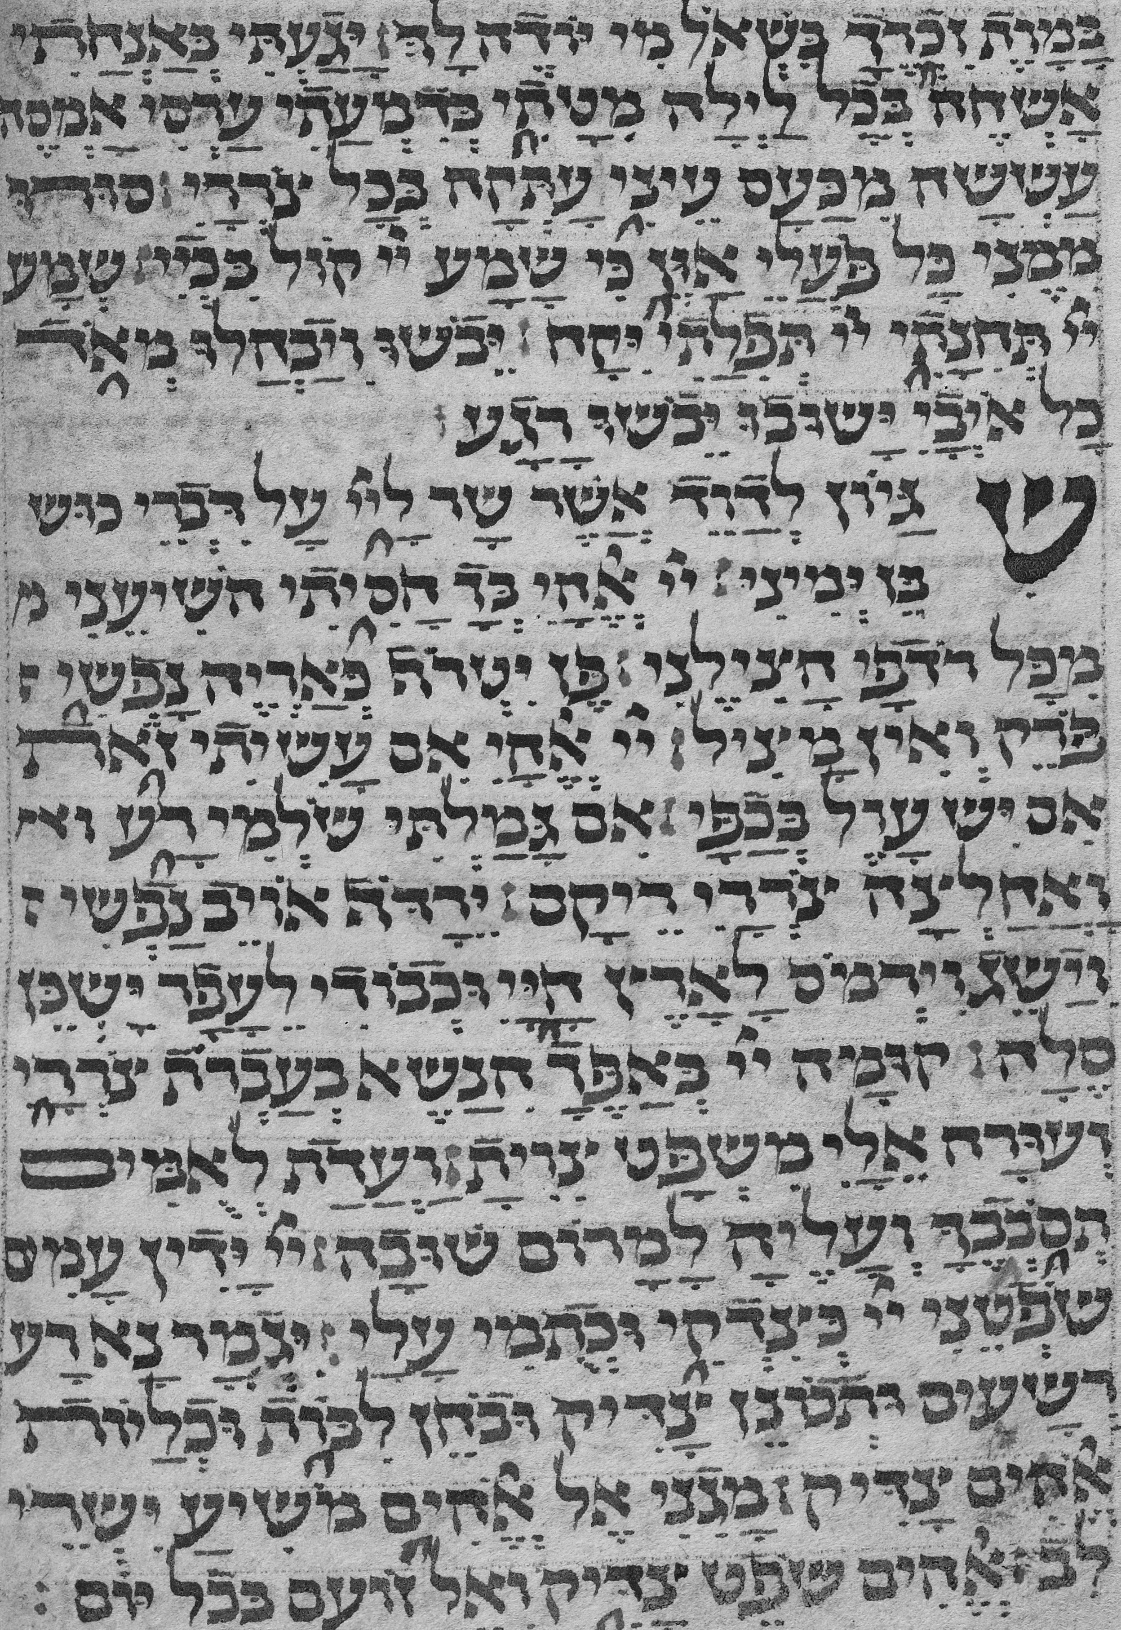 בַּמָּוֶת זִכְרֶךָ בִּשְׁאוֹל מִי יוֹדֶה לָּךְ: יָגַעְתִּי בְּאַנְחָתִי
אַשְׂחֶה בְכָל לַיְלָה מִטָּתִי בְּדִמְעָתִי עַרְסִי אַמְסֶה
עָשְׁשָׁה מִכַּעַס עֵינִי עָתְקָה בְּכָל צוֹרְרָי: סוּרוּ
מִמֶּנִּי כָּל פֹּעֲלֵי אָוֶן כִּי שָׁמַע יי קוֹל בִּכְיִי: שָׁמַע
יי תְּחִנָּתִי יי תְּפִלָּתִי יִקָּח: יֵבֹשׁוּ וְיִבָּהֲלוּ מְאֹד
כָּל אוֹיְבָי יָשׁוּבוּ יֵבֹשׁוּ רָגַע:
שִׁגָּיוֹן לְדָוִד אֲשֶׁר שָׁר לַיי עַל דִּבְרֵי כוּשׁ
בֶּן יְמִינִי: יי אֱלֹהַי בְּךָ חָסִיתִי הוֹשִׁיעֵנִי מ
מִכָּל רֹדְפַי הַצִּילֵנִי: פֶּן יִטְרֹף כְּאַרְיֵה נַפְשִׁי
פֹּרֵק וְאֵין מַצִּיל: יי אֱלֹהַי אִם עָשִׂיתִי זֹאת
אִם יֶשׁ עָוֶל בְּכַפָּי: אִם גָּמַלְתִּי שׁוֹלְמִי רָע וא
וָאֲחַלְּצָה צוֹרְרִי רֵיקָם: יִרַדֹּף אוֹיֵב נַפְשִׁי
וְיַשֵּׂג וְיִרְמֹס לָאָרֶץ חַיָּי וּכְבוֹדִי לֶעָפָר יַשְׁכֵּן
סֶלָה: קוּמָה יי בְּאַפֶּךָ הִנָּשֵׂא בְּעַבְרוֹת צוֹרְרָי
וְעוּרָה אֵלַי מִשְׁפָּט צִוִּיתָ: וַעֲדַת לְאֻמִּים
תְּסוֹבְבֶךָּ וְעָלֶיהָ לַמָּרוֹם שׁוּבָה: יי יָדִין עַמִּים
שָׁפְטֵנִי יי כְּצִדְקִי וּכְתֻמִּי עָלָי: יִגְמָר נָא רַע
רְשָׁעִים וּתְכוֹנֵן צַדִּיק וּבֹחֵן לִבּוֹת וּכְלָיוֹת
אֱלֹהִים צַדִּיק: מָגִנִּי אֶל אֱלֹהִים מוֹשִׁיעַ יִשְׁרֵי
לֵב: אֱלֹהִים שׁוֹפֵט צַדִּיק וְאֵל זוֹעֵם בְּכָל יוֹם: